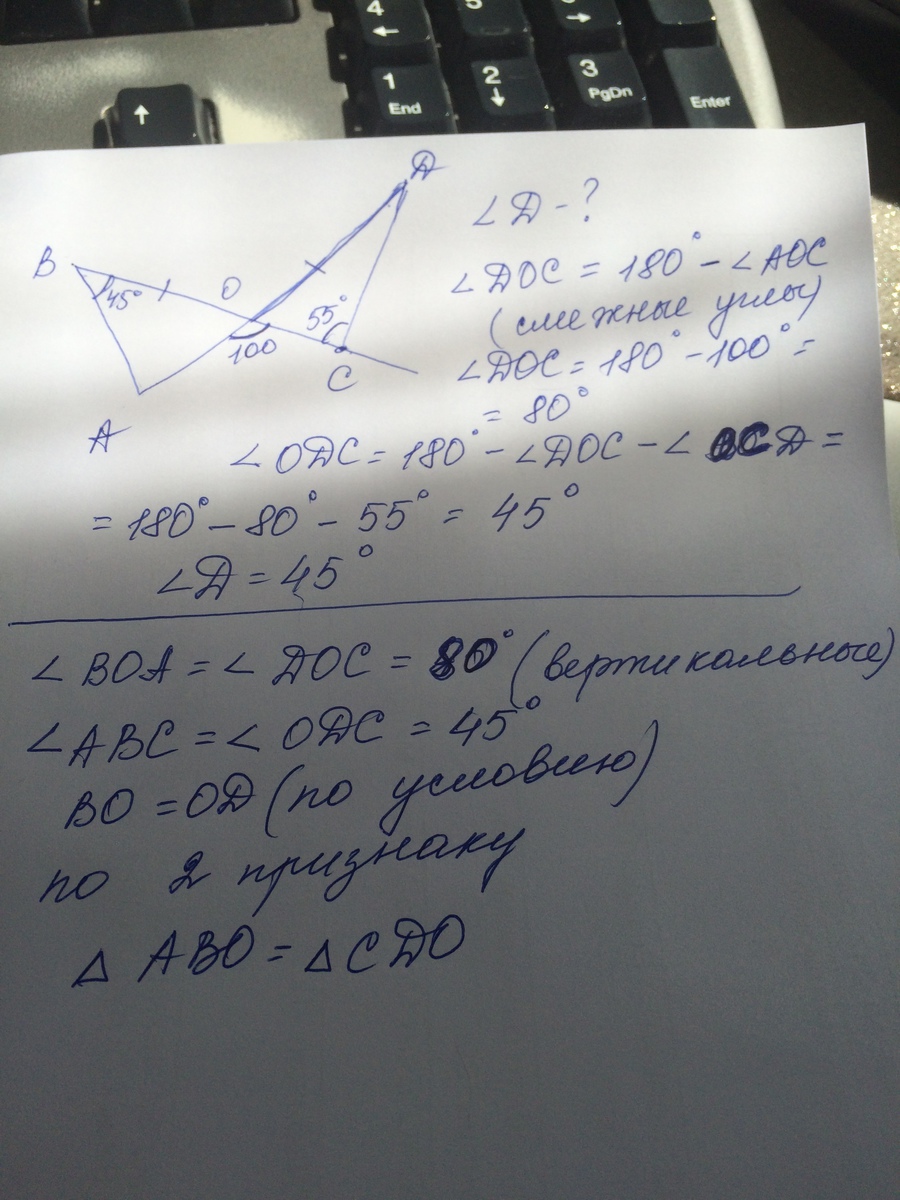 4
←
5
→
1
End
2
↓
3
PgDn
Enter
↑
D
B
45°
O
55°
100
C
A
∠D - ?
∠DOC = 180° - ∠AOC
(смежные углы)
∠DOC = 180° - 100° =
= 80°
∠ODC = 180° - ∠DOC - ∠OCD =
= 180° - 80° - 55° = 45°
∠D = 45°
∠BOA = ∠DOC = 80° (вертикальные)
∠ABC = ∠ODC = 45°
BO = OD (по условию)
по 2 признаку
△ABO = △CDO